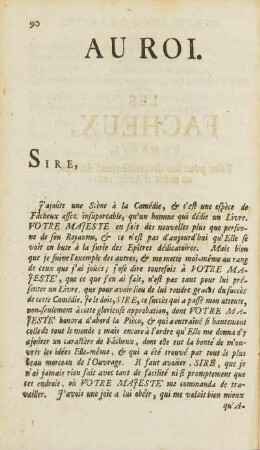 90
AU ROI.
SIRE,
J'ajoûte une Scène à la Comédie, & c'est une espèce de
Fâcheux assez insuportable, qu'un homme qui dédie un Livre.
VOTRE MAJESTE' en fait des nouvelles plus que person-
ne de son Royaume, & ce n'est pas d'aujourd'hui qu'Elle se
voit en bute à la furie des Epitres dédicatoires. Mais bien
que je suive l'exemple des autres, & me mette moi-même au rang
de ceux que j'ai jouës; j'ose dire toutefois à VOTRE MA-
JESTE', que ce que j'en ai fait, n'est pas tant pour lui pré-
senter un Livre, que pour avoir lieu de lui rendre grace du succès
de cette Comédie. Je le dois, SIRE, ce succès qui a passé mon attente,
non-seulement à cette glorieuse approbation, dont VOTRE MA-
JESTE' honora d'abord la Pièce, & qui a entraîné si hautement
celle de tout le monde; mais encore à l'ordre qu'Elle me donna d'y
ajoûter un caractère de Fâcheux, dont elle eut la bonté de m'ou-
vrir les idées Elle-même, & qui a été trouvé par tout le plus
beau morceau de l'Ouvrage. Il faut avoüer, SIRE, que je
n'ai jamais rien fait avec tant de facilité ni si promptement que
cet endroit, où VOTRE MAJESTE' me commanda de tra-
vailler. J'avois une joie à lui obéir, qui me valoit bien mieux
qu'A-